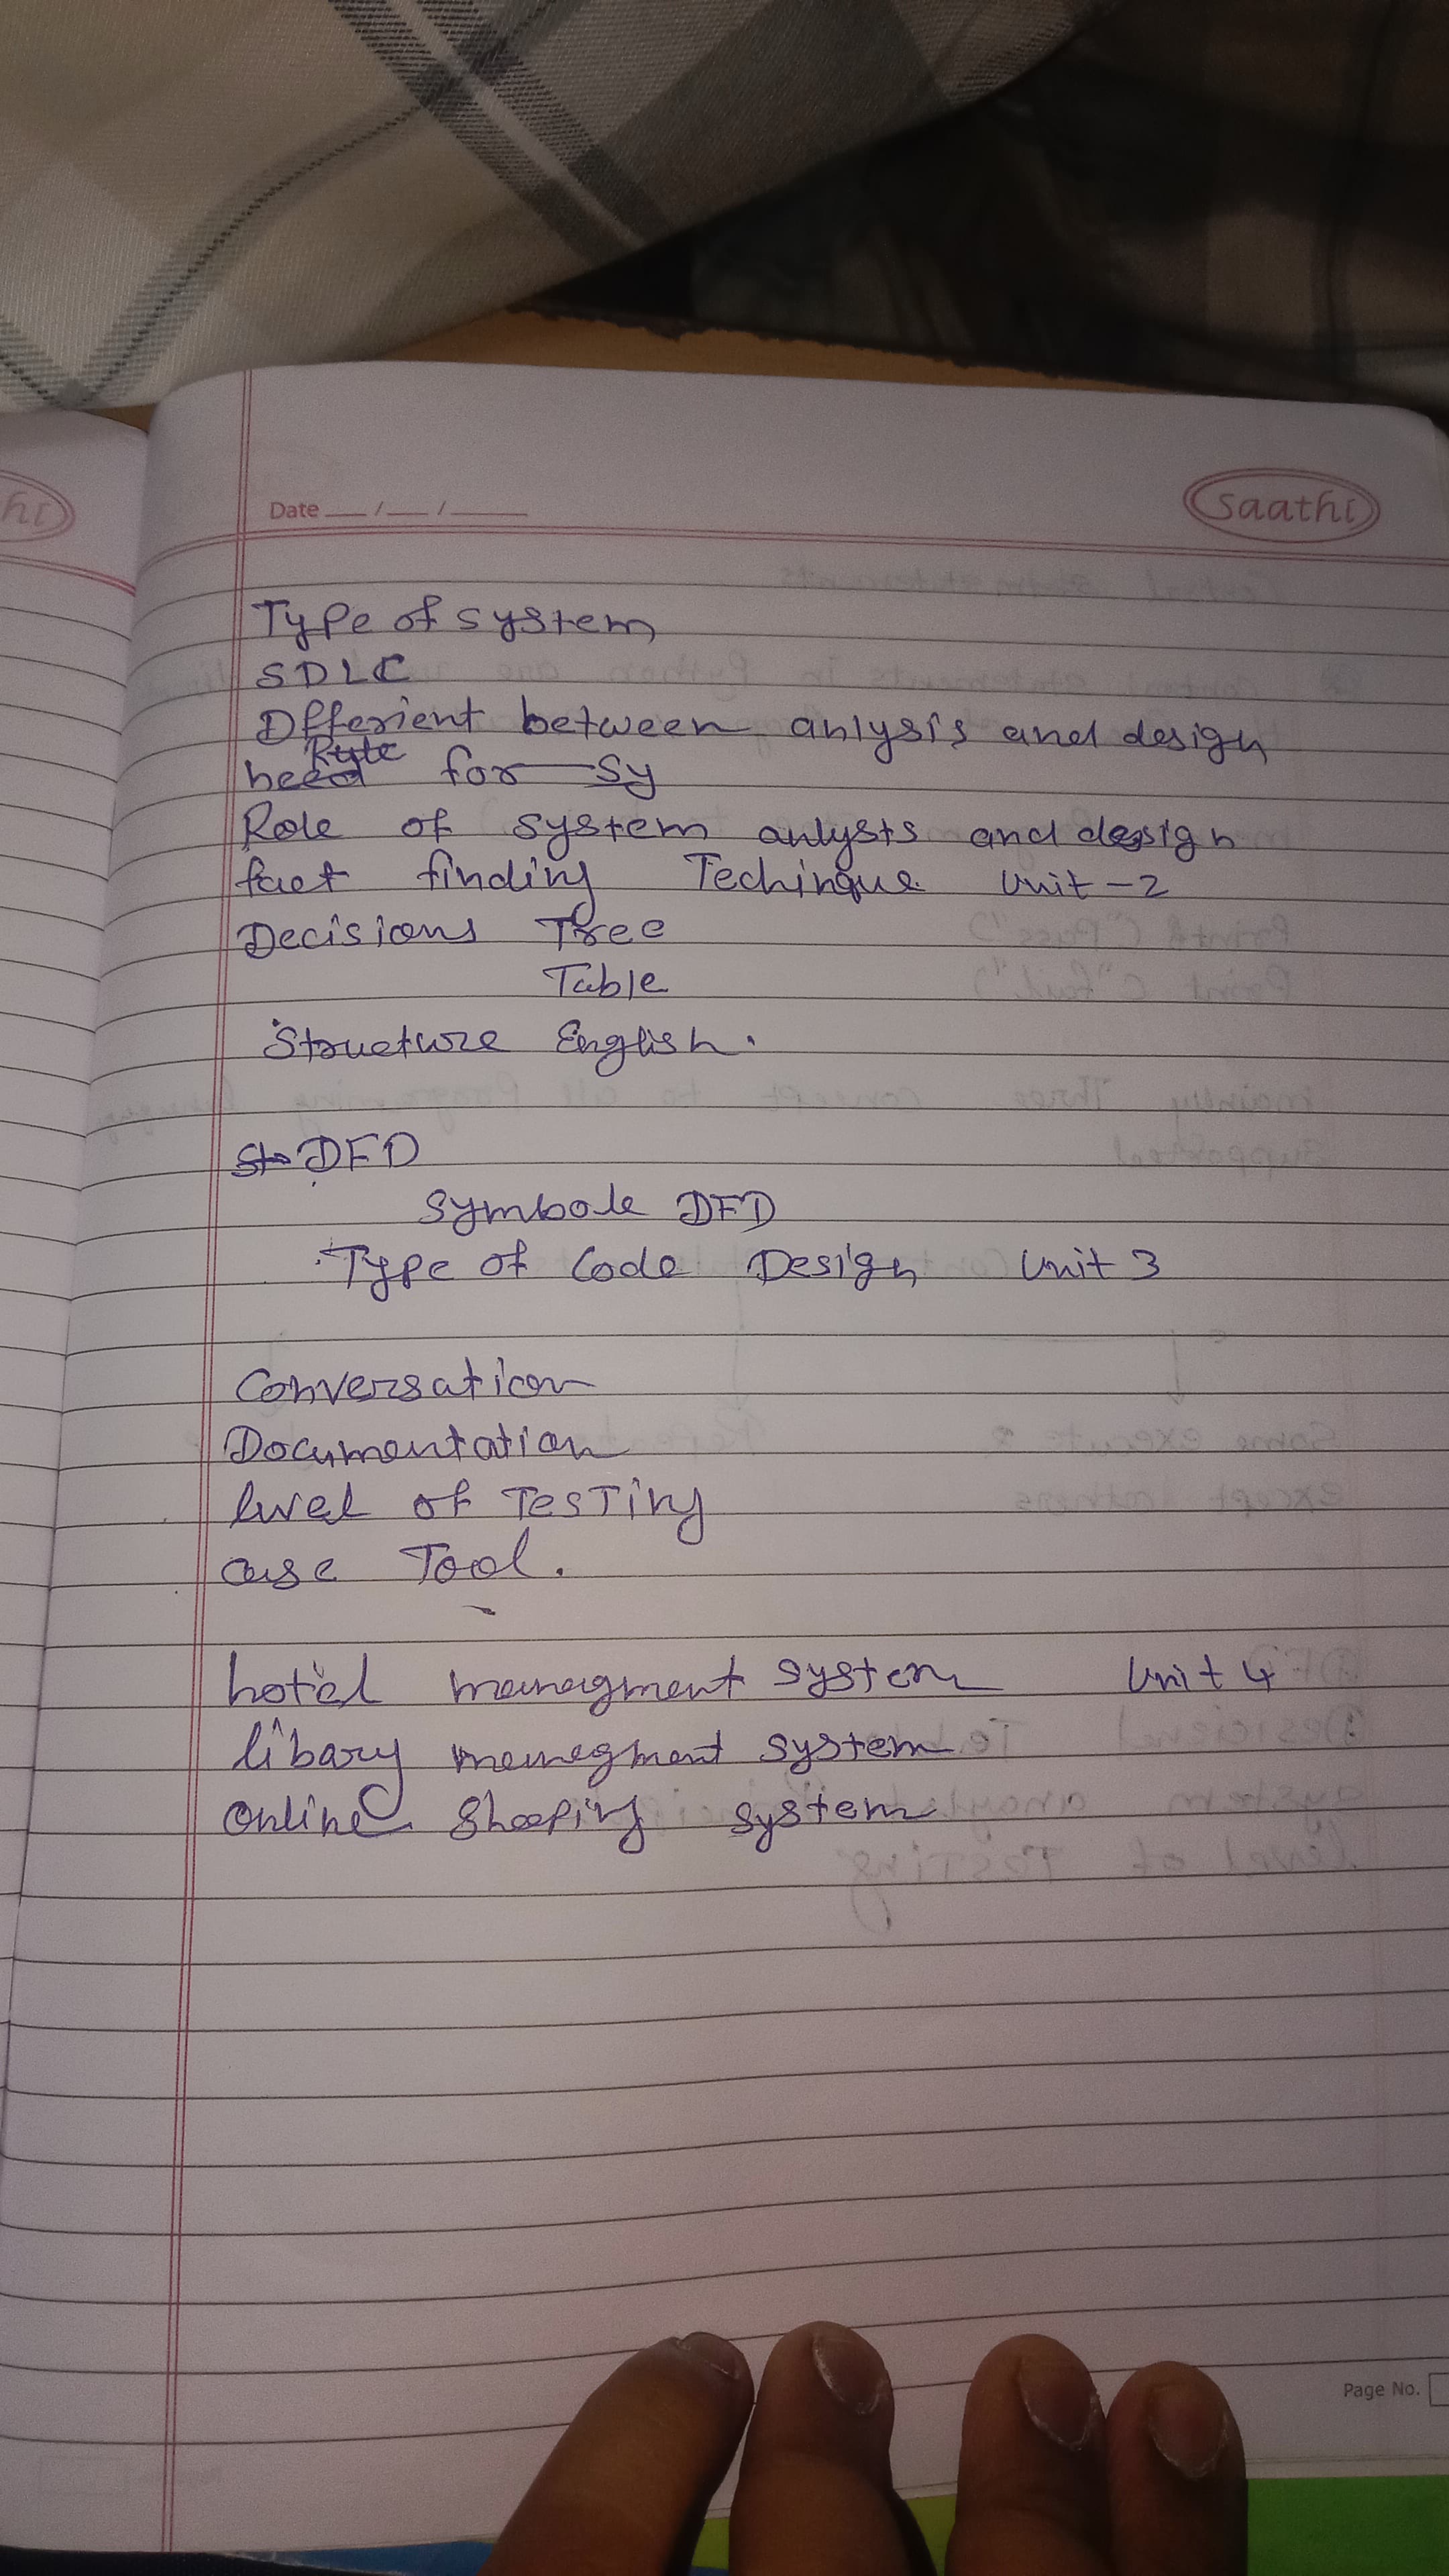 Date __/__/____
saathi
Type of system
SDLC
Dfferient between anlysis and design
need for Sy
Role of system anlysts and design
fact finding Techinque Unit-2
Decisions Tree
Table
Structure English.
DFD
Symbole DFD
Type of Code Design Unit 3
Conversation
Documentation
level of TesTing
case Tool.
hotel managment system Unit 4
libary menegment system
Online Shooping system
Page No.